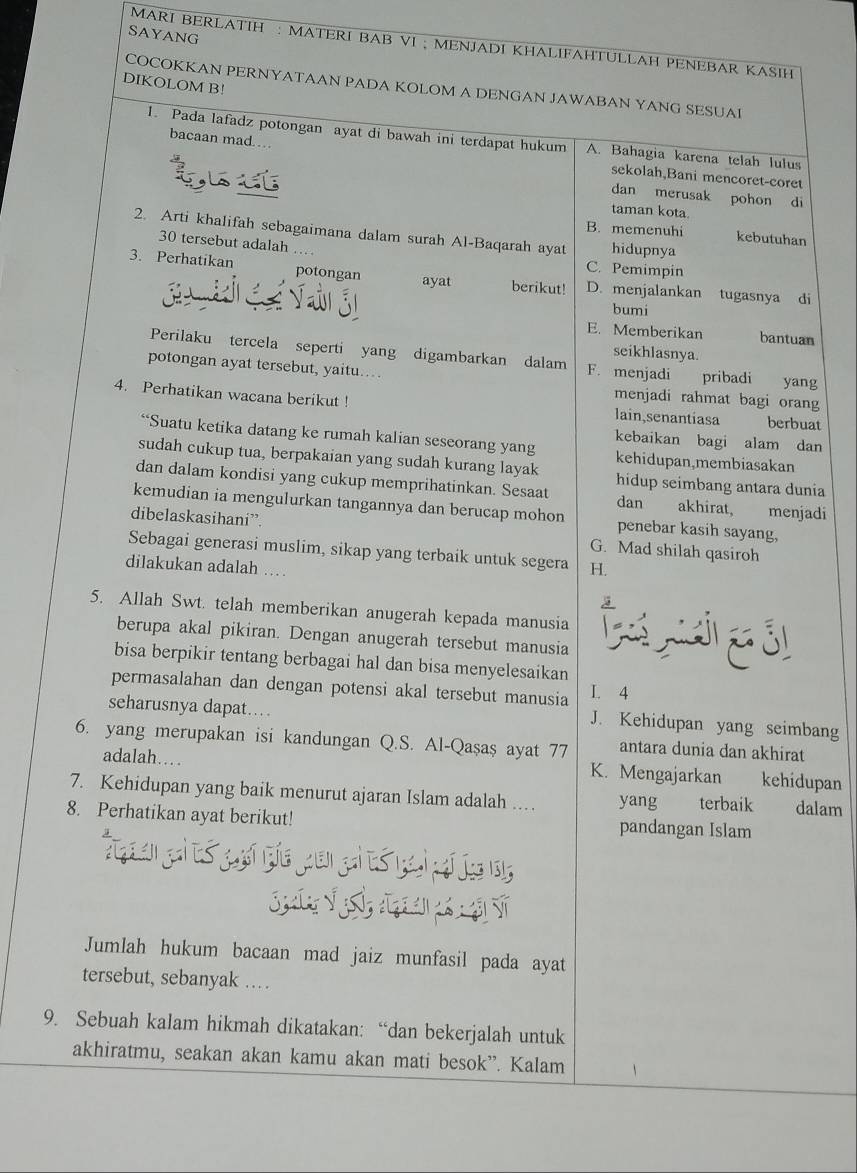 MARI BERLATIH : MATERI BAB VI ; MENJADI KHALIFAHTULLAH PENEBAR KASIH
SAYANG
COCOKKAN PERNYATAAN PADA KOLOM A DENGAN JAWABAN YANG SESUAI
DIKOLOM B!
1. Pada lafadz potongan ayat di bawah ini terdapat hukum
bacaan mad....
فَاُمُّهٗ هَاوِيَةٌ ۗ
2. Arti khalifah sebagaimana dalam surah Al-Baqarah ayat
30 tersebut adalah ....
3. Perhatikan potongan ayat berikut!
اِنَّ اللّٰهَ لَا يُحِبُّ الْمُفْسِدِيْنَ
Perilaku tercela seperti yang digambarkan dalam
potongan ayat tersebut, yaitu....
4. Perhatikan wacana berikut !
“Suatu ketika datang ke rumah kalian seseorang yang
sudah cukup tua, berpakaian yang sudah kurang layak
dan dalam kondisi yang cukup memprihatinkan. Sesaat
kemudian ia mengulurkan tangannya dan berucap mohon
dibelaskasihani”.
Sebagai generasi muslim, sikap yang terbaik untuk segera
dilakukan adalah ....
5. Allah Swt. telah memberikan anugerah kepada manusia
berupa akal pikiran. Dengan anugerah tersebut manusia
bisa berpikir tentang berbagai hal dan bisa menyelesaikan
permasalahan dan dengan potensi akal tersebut manusia
seharusnya dapat....
6. yang merupakan isi kandungan Q.S. Al-Qaṣaṣ ayat 77
adalah....
7. Kehidupan yang baik menurut ajaran Islam adalah ....
8. Perhatikan ayat berikut!
وَاِذَا قِيْلَ لَهُمْ اٰمِنُوْا كَمَآ اٰمَنَ النَّاسُ قَالُوْٓا اَنُؤْمِنُ كَمَآ اٰمَنَ السُّفَهَاۤءُ ۗ
اَلَآ اِنَّهُمْ هُمُ السُّفَهَاۤءُ وَلٰكِنْ لَّا يَعْلَمُوْنَ
Jumlah hukum bacaan mad jaiz munfasil pada ayat
tersebut, sebanyak ....
9. Sebuah kalam hikmah dikatakan: “dan bekerjalah untuk
akhiratmu, seakan akan kamu akan mati besok”. Kalam
A. Bahagia karena telah lulus
sekolah,Bani mencoret-coret
dan merusak pohon di
taman kota.
B. memenuhi kebutuhan
hidupnya
C. Pemimpin
D. menjalankan tugasnya di
bumi
E. Memberikan bantuan
seikhlasnya.
F. menjadi pribadi yang
menjadi rahmat bagi orang
lain,senantiasa berbuat
kebaikan bagi alam dan
kehidupan,membiasakan
hidup seimbang antara dunia
dan akhirat, menjadi
penebar kasih sayang,
G. Mad shilah qasiroh
H.
اِنَّ مَعَ الْعُسْرِ يُسْرًا ۗ
I. 4
J. Kehidupan yang seimbang
antara dunia dan akhirat
K. Mengajarkan kehidupan
yang terbaik dalam
pandangan Islam